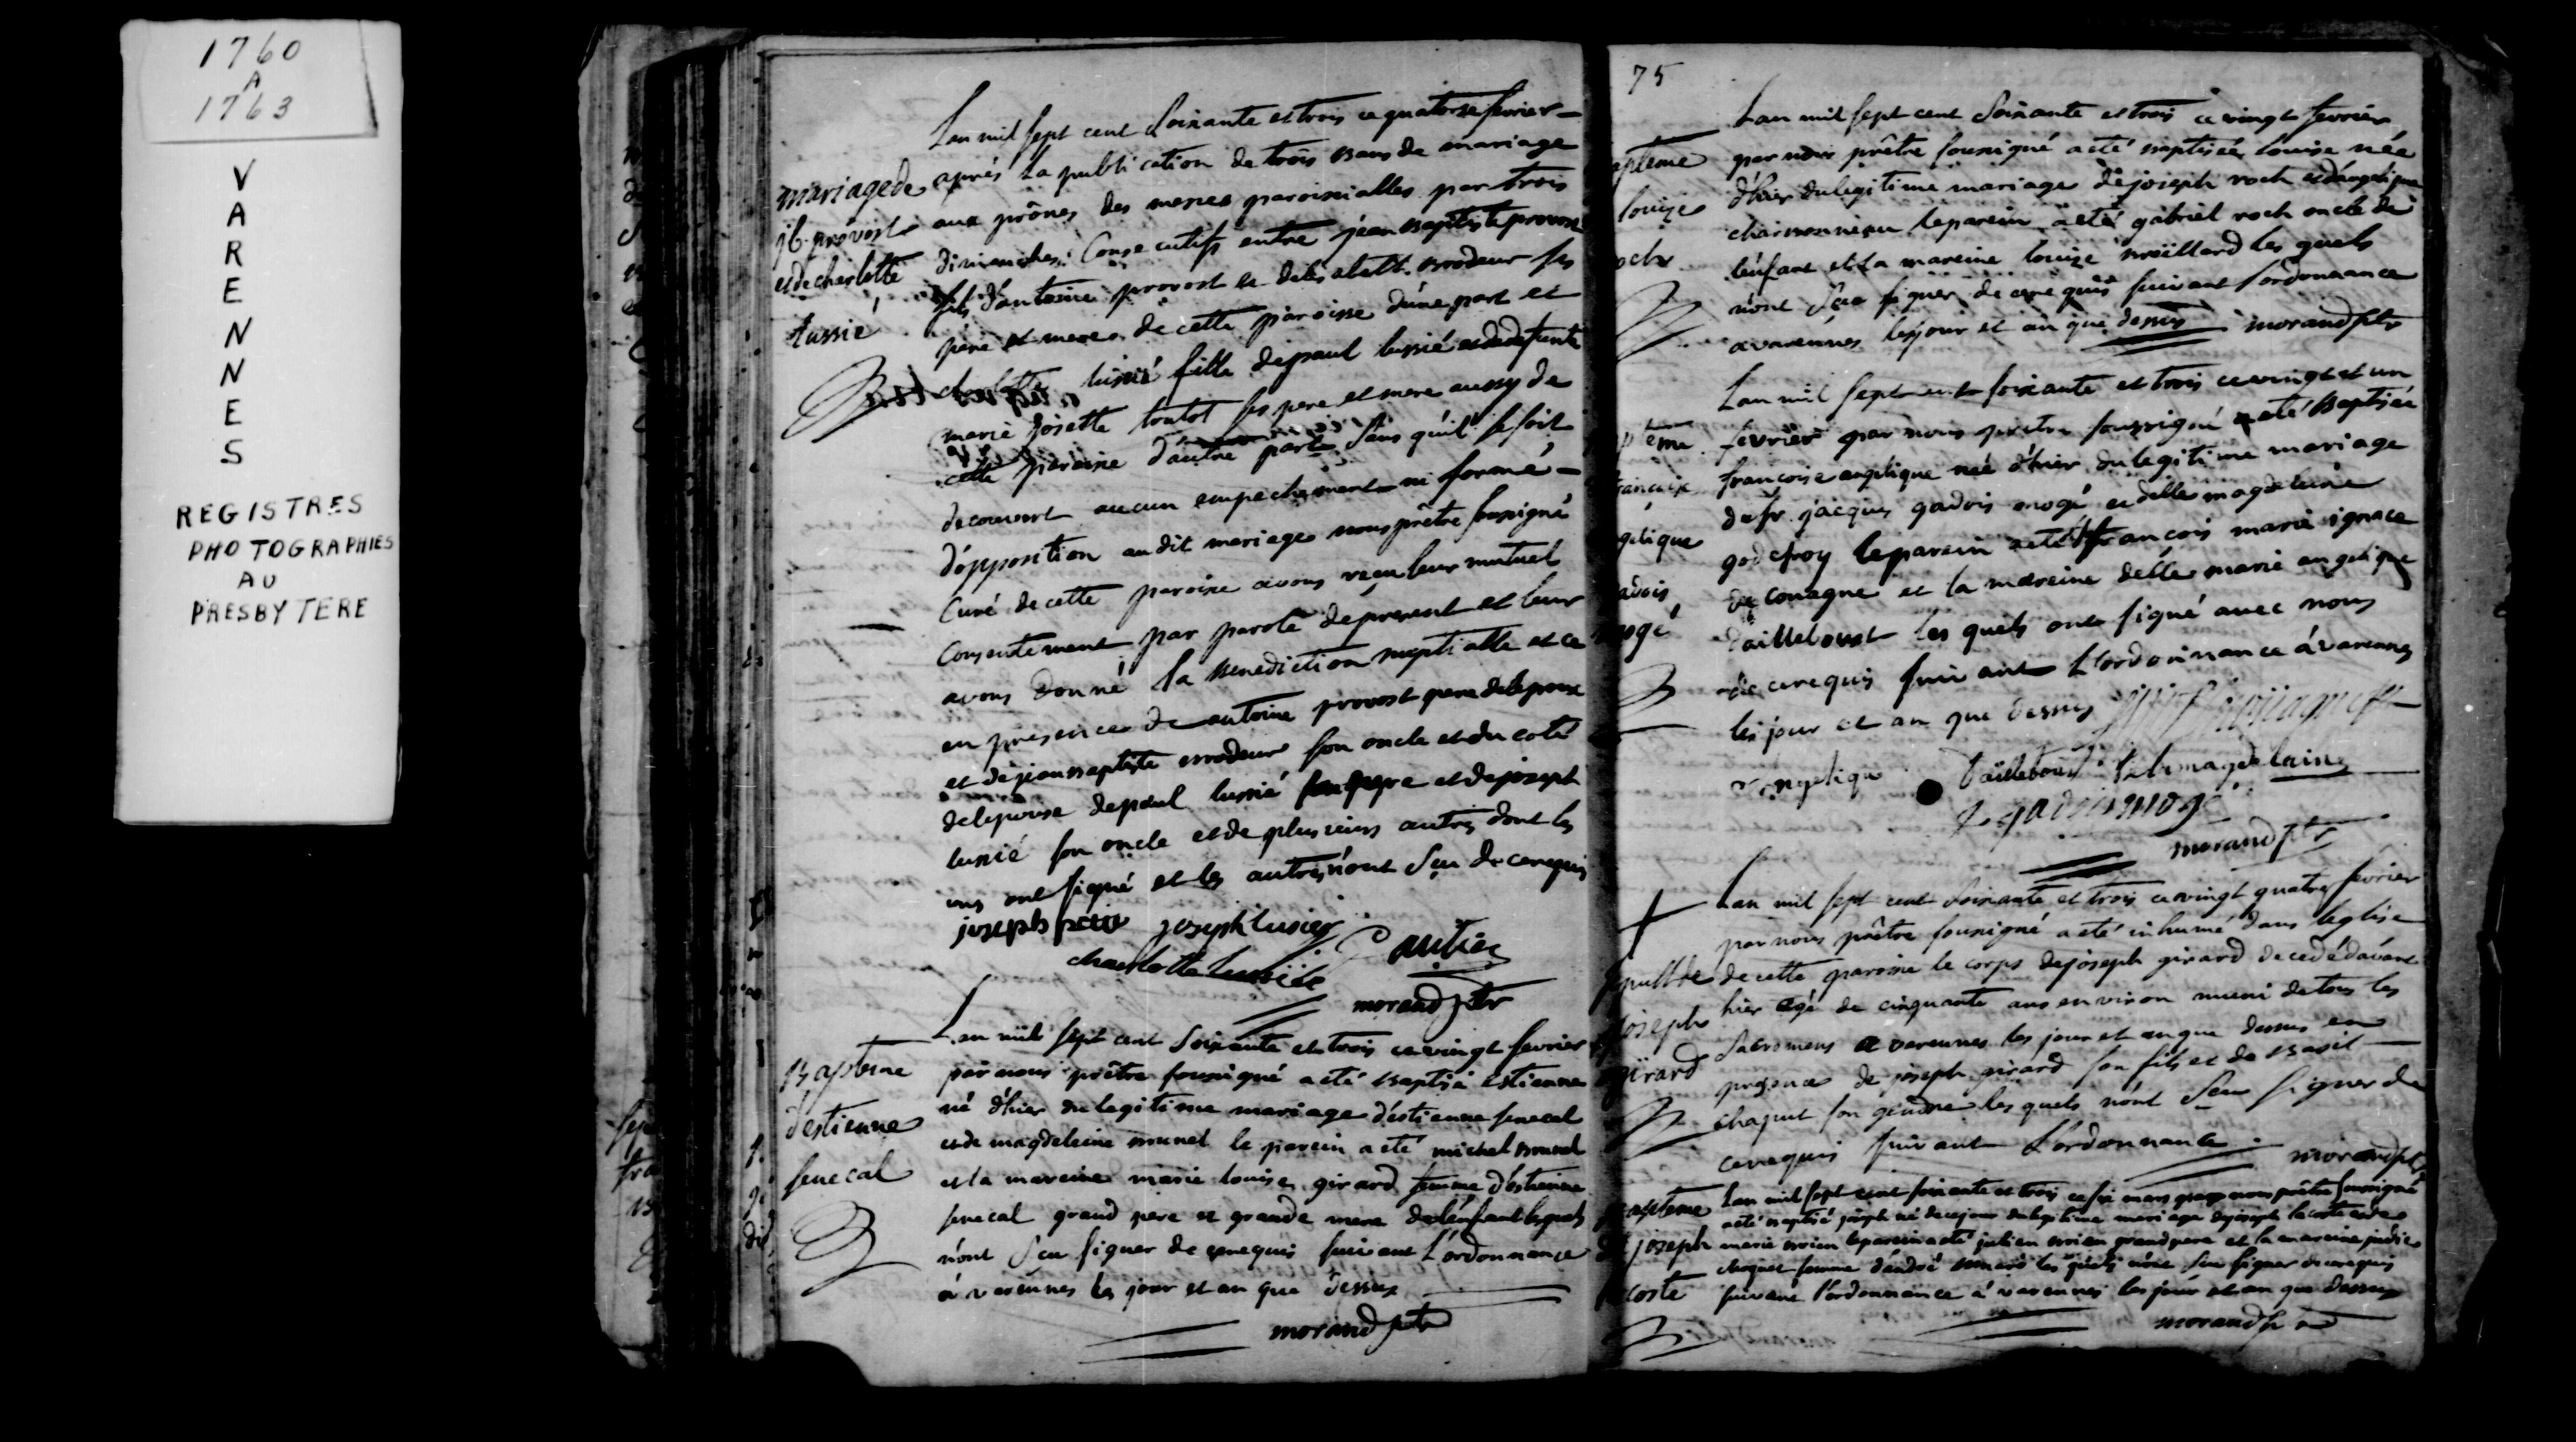 1760
A
1763
VARENNES
REGISTRES
PHOTOGRAPHIES
AU
PRESBYTERE
mariage de
jb. prévost
et de charlotte
Lussié
Lan mil sept cent Soixante et trois ce quatorse fevrier
aprés La publication de trois bans de mariage
aux prônes des messes paroissialles par trois
dimenches Consecutifs entre jean baptiste provost
fils d'antoine provost et de brodeur ses
pere et mere de cette paroisse d'une part et
charlotte lussié fille de paul lussié et de defunte
marie josette toutot ses pere et mere aussy de
cette paroisse d'autre part Sans qu'il se soit
decouvert aucun empechement ni formé
d'opposition au dit mariage nous prêtre sousigné
Curé de cette paroisse avons reçu leur mutuel
Consentement par parole de present et leur
avons donné la benediction nuptialle et ce
en presence de antoine provost pere de lepoux
et de jean baptiste brodeur son oncle et du coté
de lepouse de paul lussié son pere et de joseph
lussié son oncle et de plusieurs autres dont les
uns ont signé et les autres n'ont Scu de ce requis
joseph petit joseph lusier Gautier
charlotte Lussiée
morand ptr
Bapteme
d'estienne
senecal
Lan mil sept cent Soixante et trois ce vingt fevrier
par nous prêtre sousigné a eté baptisé Estienne
né d'hier du legitime mariage d'estienne senecal
et de magdeleine brunel le parein a eté michel brunel
et la mareine marie louise girard femme d'estienne
senecal grand pere et grande mere de l'enfant lesquels
n'ont Scu signer de ce requis suivant L'ordonnance
á varennes les jour et an que dessus
morand ptr
75
apteme
louise
roch
Lan mil sept cent Soixante et trois ce vingt fevrier
par nous prêtre sousigné a eté baptisée louise née
d'hier du legitime mariage de joseph roch et d'angelique
charbonneau le parein a eté gabriel roch oncle de
l'enfant et la mareine louise les quels
n'ont Sçu signer de ce requis suivant l'ordonnance
a varennes les jour et an que dessus morand ptr
eme
francoise
gelique
adois
mogé
Lan mil sept cent soixante et trois ce vingt et un
fevrier par nous pretre soussigné a eté baptisée
francoise angelique née d'hier du legitime mariage
du sr. jacques gadois mogé et delle magdeleine
godefroy le parein a eté françois marie ignace
de couagne et la mareine delle marie angelique
dailleboust les quels ont signé avec nous
de ce requis suivant L'ordonnance á varennes
les jour et an que dessus
angelique Dailleboust magdelaine
gadois moge
morand ptr
sepulture
joseph
girard
Lan mil sept cent Soixante et trois ce vingt quatre fevrier
par nous prêtre sousigné a eté inhumé dans l'eglise
de cette paroisse le corps de joseph girard decedé d'avant
hier agé de cinquante ans environ muni de tous les
Sacremens a varennes les jour et an que dessus en
presence de joseph girard son fils et de basil
chaput son gendre les quels n'ont Sceu signer de
ce requis suivant L'ordonnance morand ptr
Bapteme
de joseph
lacoste
Lan mil sept cent soixante et trois ce six mars par nous prêtre sousigné
a eté baptisé joseph né de ce jour du legitime mariage de joseph lacoste et de
marie brien le parein a eté julien brien grand pere et la mareine
choquet femme d'andré les quels n'ont Sceu signer de ce requis
suivant l'ordonnance a varennes les jour et an que dessus
morand ptr